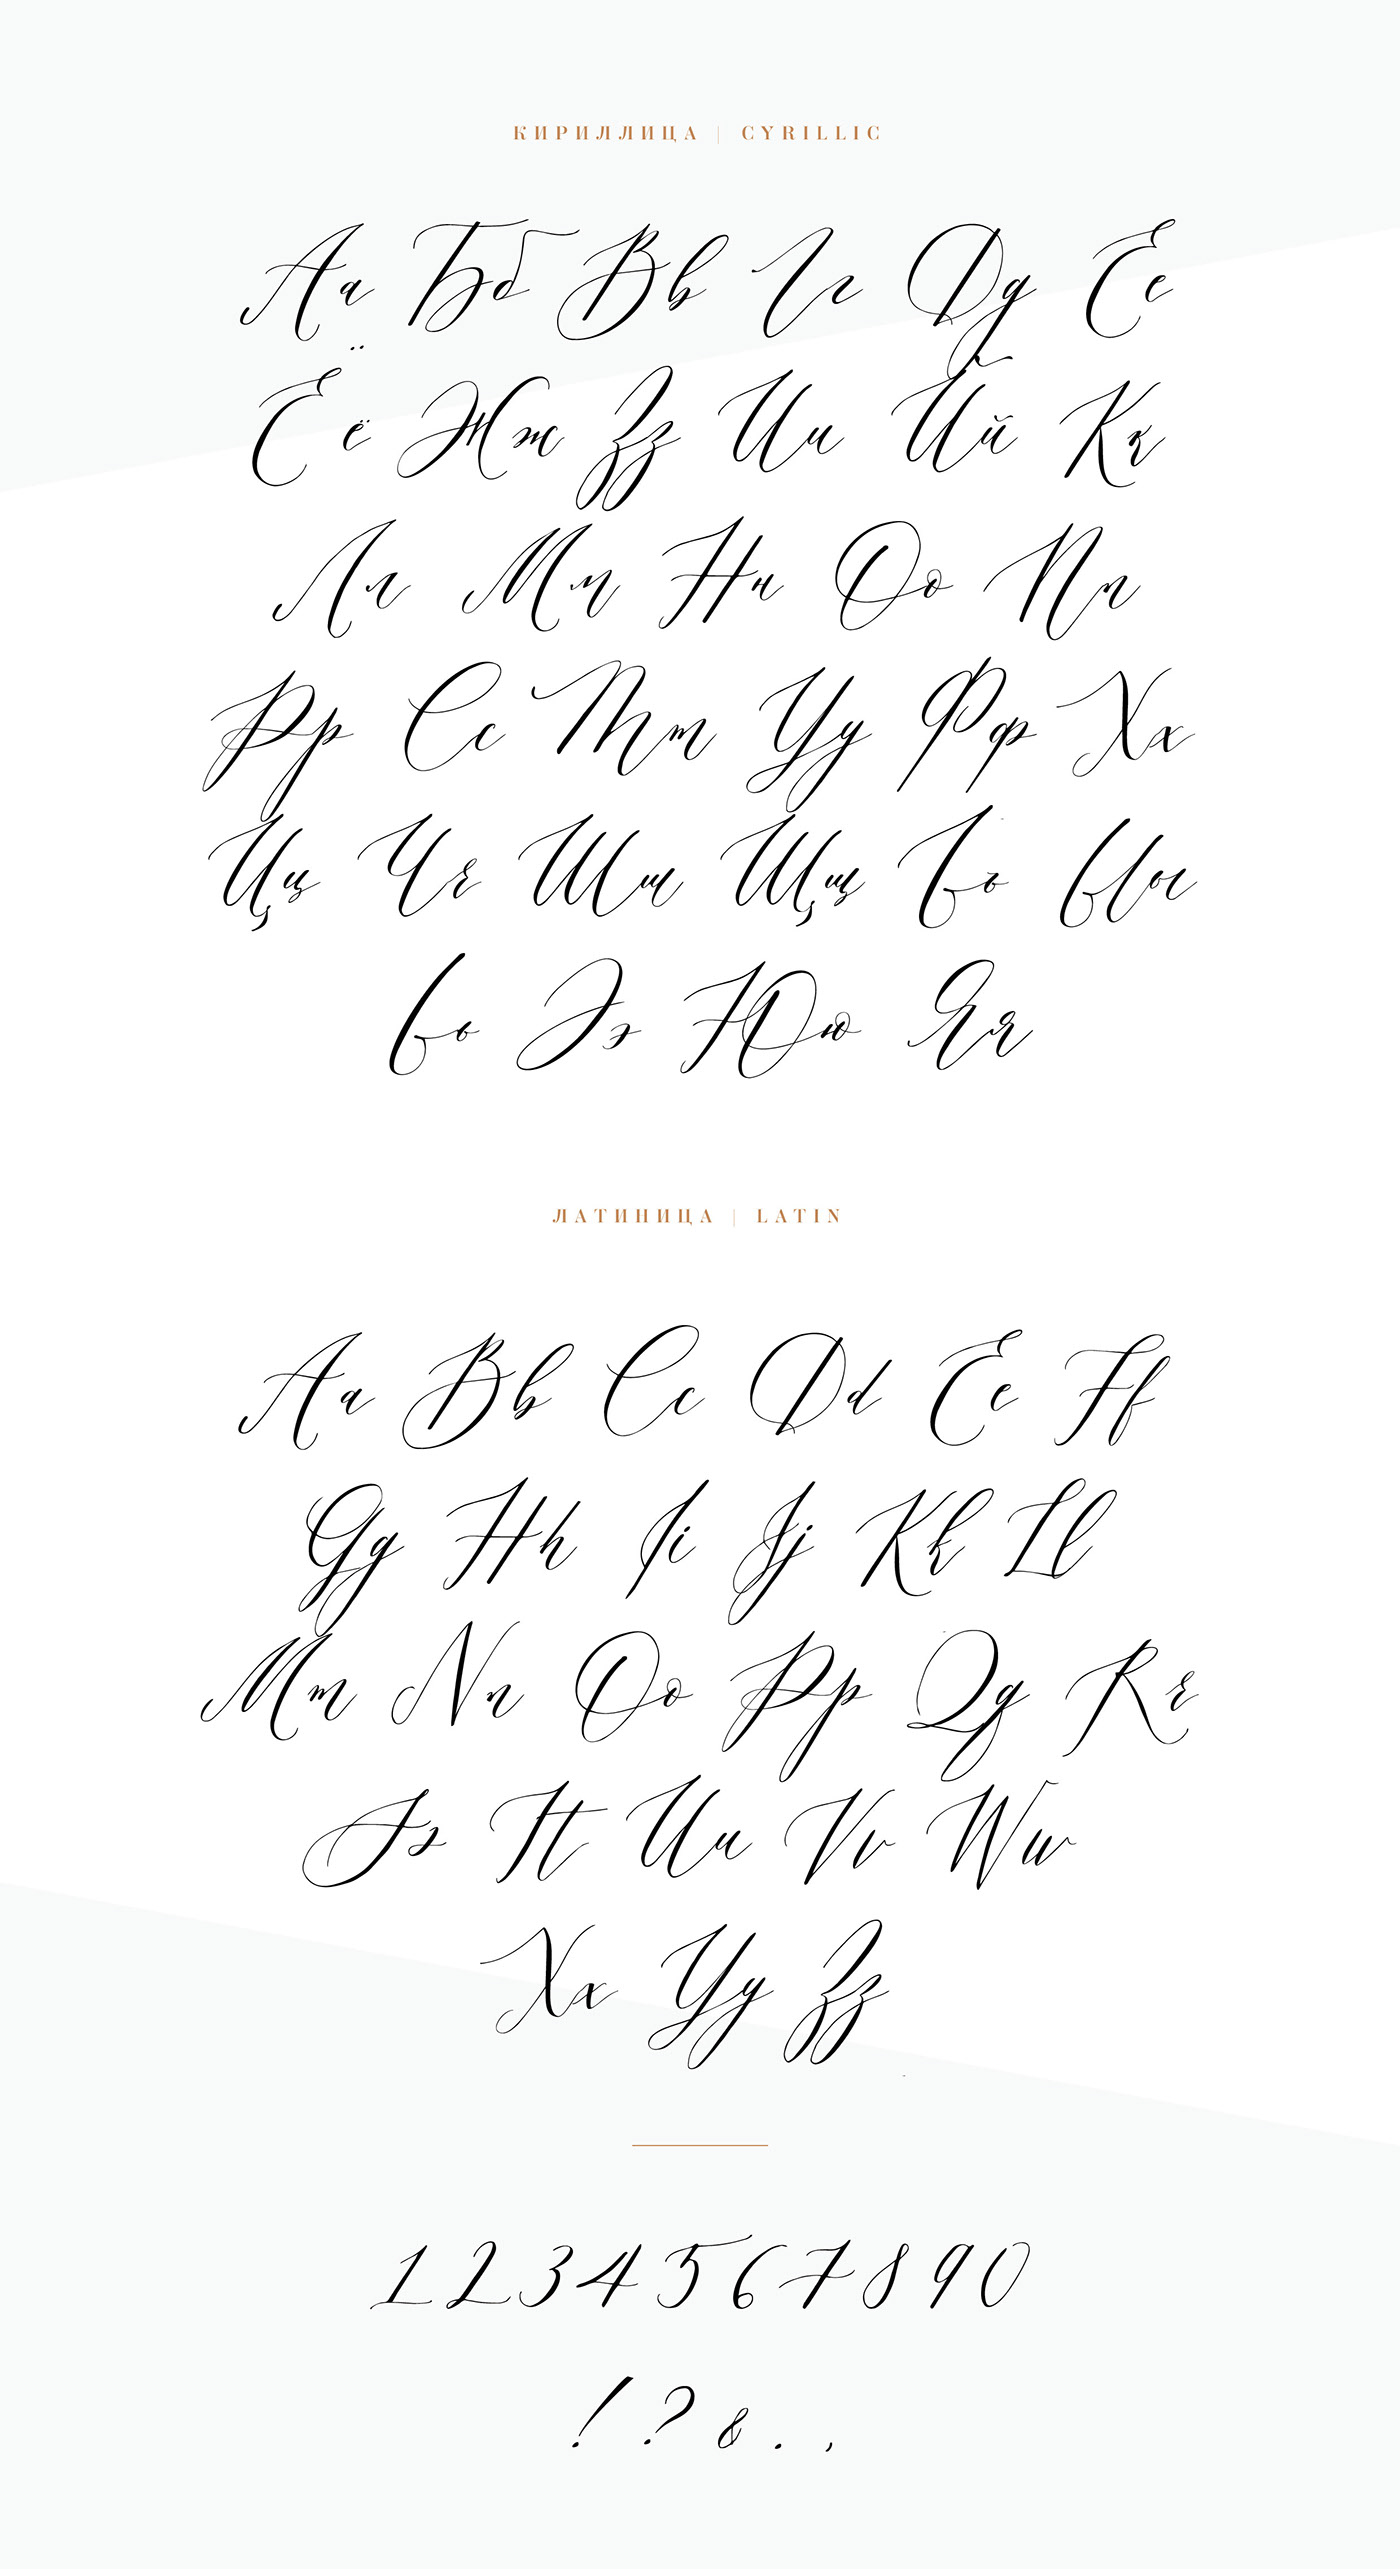 КИРИЛЛИЦА | CYRILLIC
Аа Бб Вв Гг Дд Ее
Ёё Жж Зз Ии Йй Кк
Лл Мм Нн Оо Пп
Рр Сс Тт Уу Фф Хх
Цц Чч Шш Щщ Ъъ Ыы
Ьь Ээ Юю Яя
ЛАТИНИЦА | LATIN
Aa Bb Cc Dd Ee Ff
Gg Hh Ii Jj Kk Ll
Mm Nn Oo Pp Qq Rr
Ss Tt Uu Vv Ww
Xx Yy Zz
1234567890
! ? & . ,